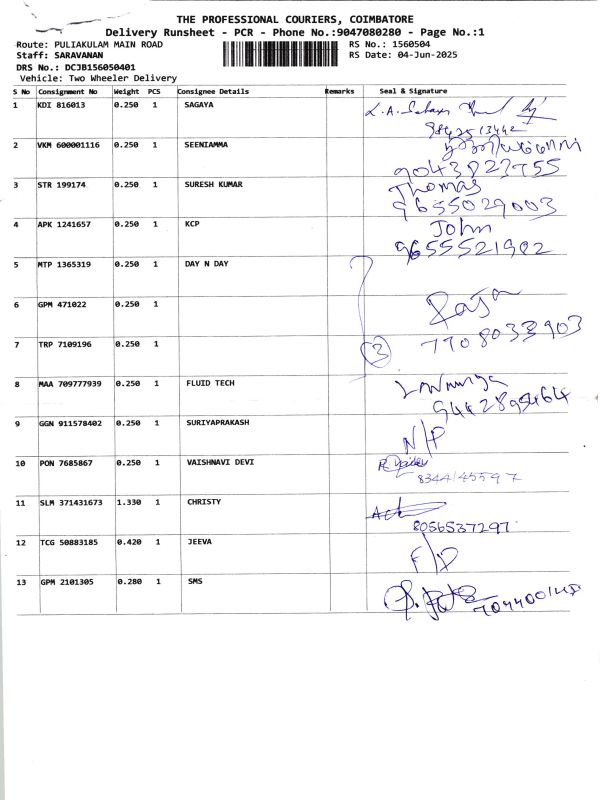 THE PROFESSIONAL COURIERS, COIMBATORE
Delivery Runsheet - PCR - Phone No.:9047080280 - Page No.:1
Route: PULIAKULAM MAIN ROAD RS No.: 1560504
Staff: SARAVANAN RS Date: 04-Jun-2025
DRS No.: DCJB156050401
Vehicle: Two Wheeler Delivery
S No Consignment No Weight PCS Consignee Details Remarks Seal & Signature
1 KDI 816013 0.250 1 SAGAYA
2 VKM 600001116 0.250 1 SEENIAMMA
9043823755
3 STR 199174 0.250 1 SURESH KUMAR Thomas
9655029003
4 APK 1241657 0.250 1 KCP John
9655521902
5 MTP 1365319 0.250 1 DAY N DAY
6 GPM 471022 0.250 1 Raja
7708033903
7 TRP 7109196 0.250 1 3
8 MAA 709777939 0.250 1 FLUID TECH
9 GGN 911578402 0.250 1 SURIYAPRAKASH N/P
10 PON 7685867 0.250 1 VAISHNAVI DEVI
8344145597
11 SLM 371431673 1.330 1 CHRISTY
8056537297
12 TCG 50883185 0.420 1 JEEVA F/D
13 GPM 2101305 0.280 1 SMS